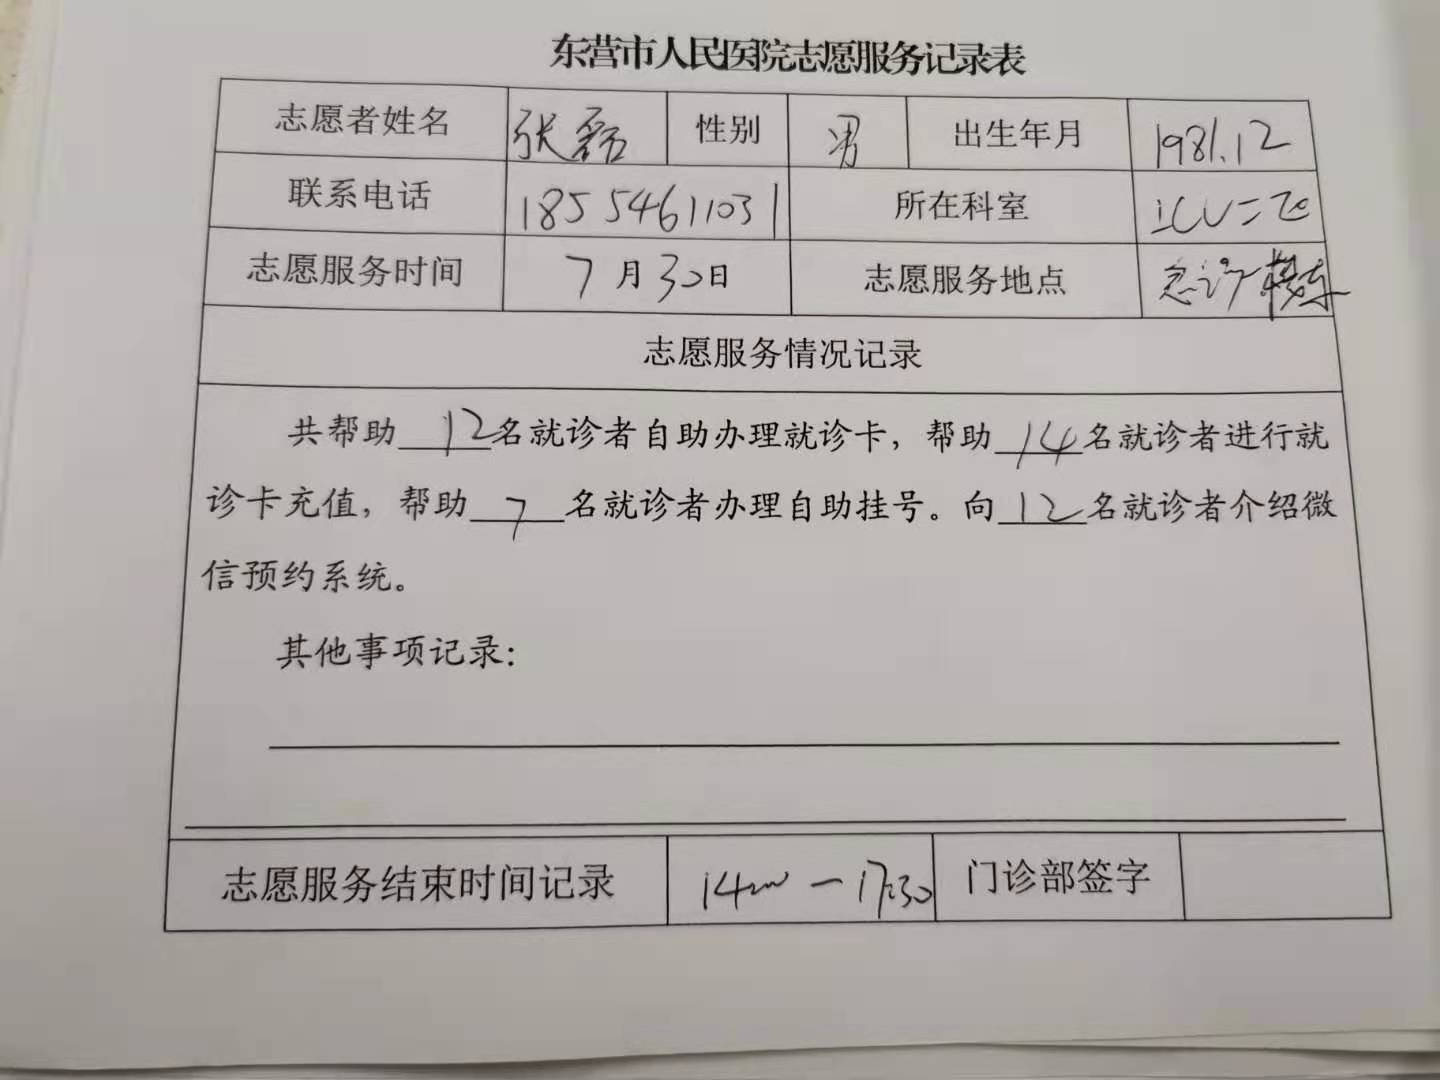 东营市人民医院志愿服务记录表
志愿者姓名 张磊 性别 男 出生年月 1981.12
联系电话 18554611031 所在科室 ICU二区
志愿服务时间 7月30日 志愿服务地点 急诊楼东
志愿服务情况记录
共帮助12名就诊者自助办理就诊卡，帮助14名就诊者进行就
诊卡充值，帮助7名就诊者办理自助挂号。向12名就诊者介绍微
信预约系统。
其他事项记录：
志愿服务结束时间记录 14:00—17:30 门诊部签字